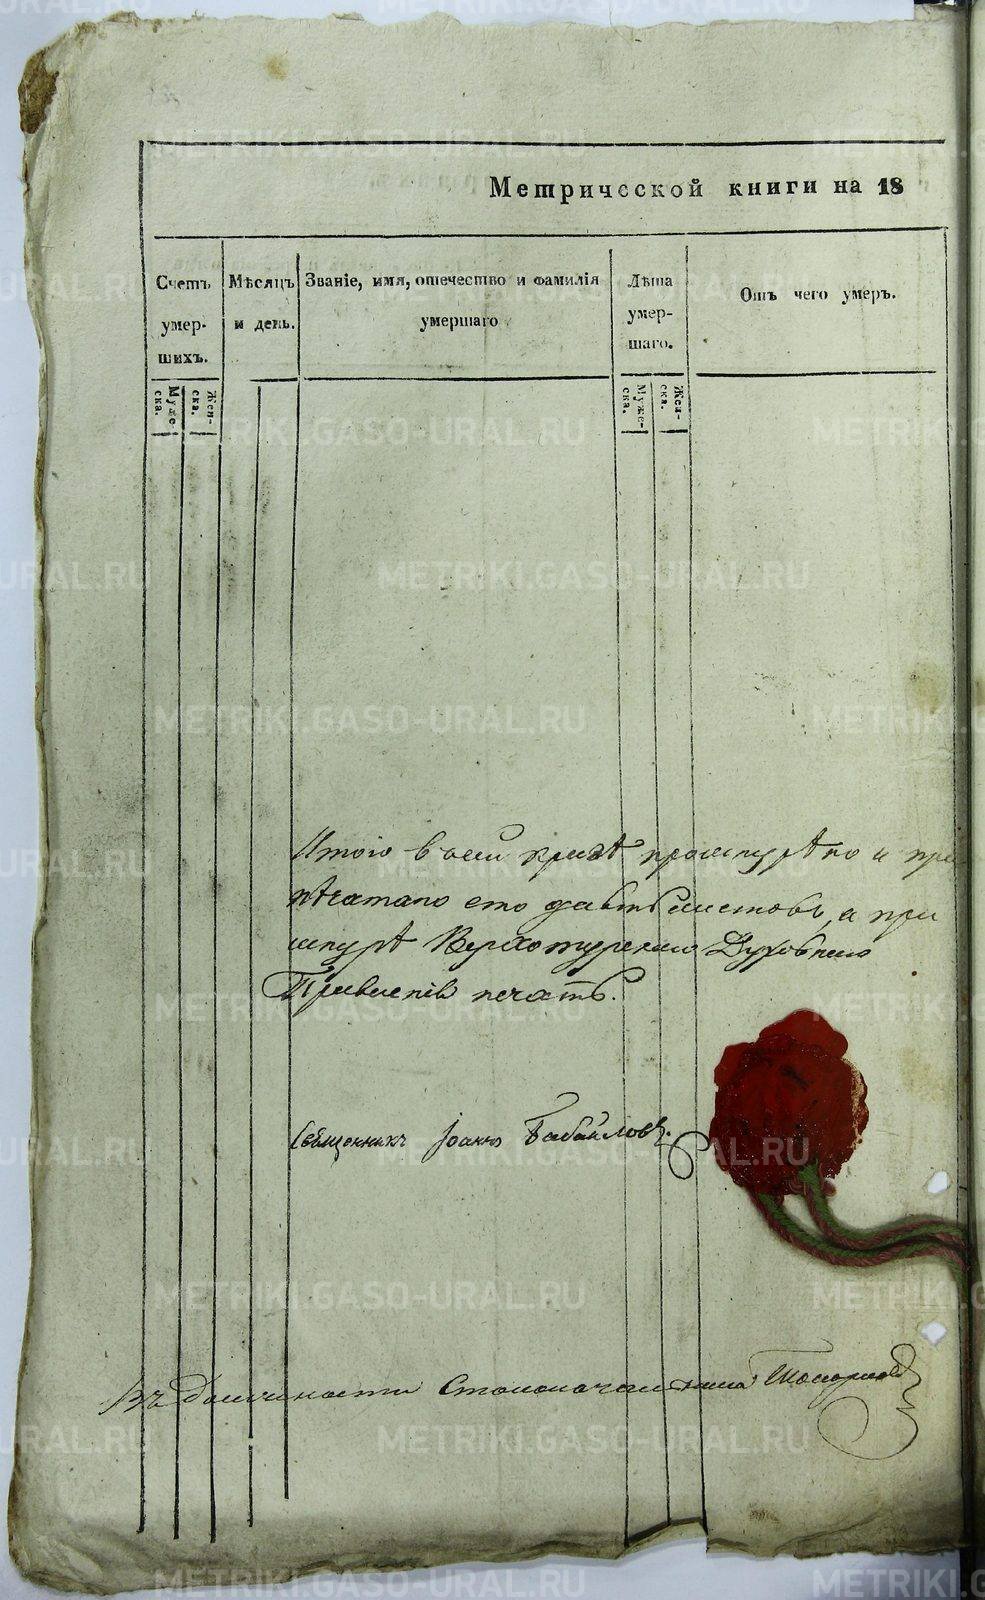 Метрической книги на 18
Счетъ умер-шихъ.
Мѣсяцъ и день.
Званіе, имя, отечество и фамилія умершаго
Лѣта умер-шаго.
Отъ чего умеръ.
Муже-ска.
Жен-ска.
Муже-ска.
Жен-ска.
Итого в сей книгѣ прошнурѣно и при
пѣчатано сто листовъ, а при
шнурѣ Верхотурскаго Духовнаго
Правленія печать.
Священникъ Іоаннъ Бабайловъ.
Въ должности Столоначальника
METRIKI.GASO-URAL.RU